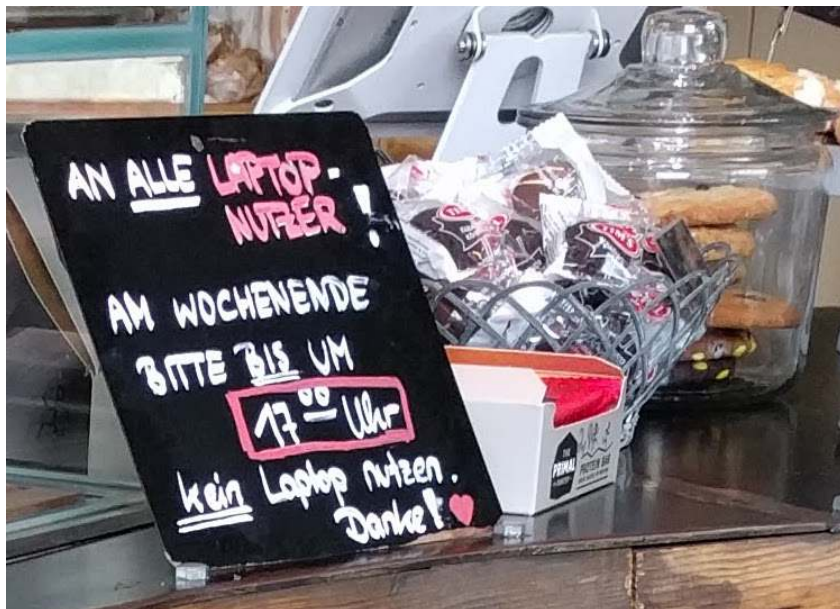 AN ALLE LAPTOP-
NUTZER!
AM WOCHENENDE
BITTE BIS UM
17⁰⁰ Uhr
kein Laptop nutzen.
Danke!
THE
PRIMAL
PANTRY
PROTEIN BAR